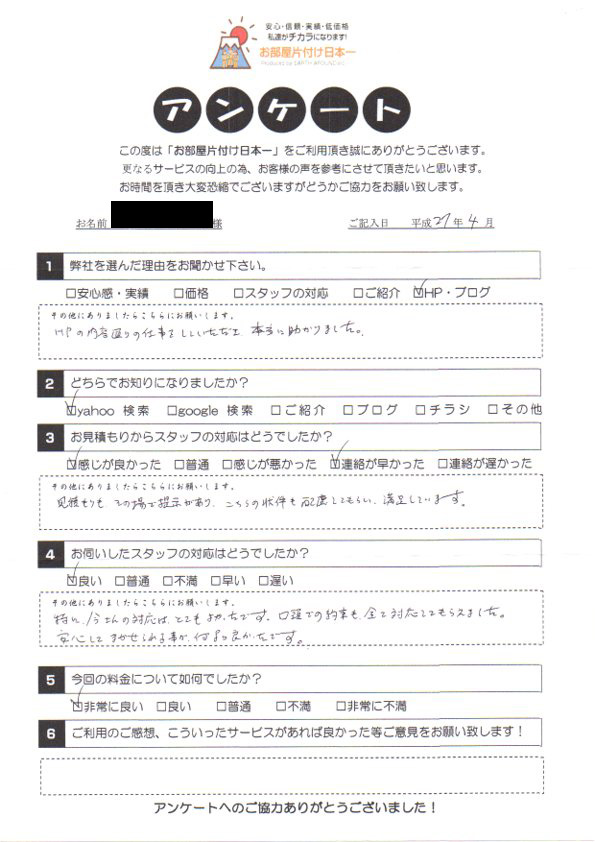 安心・信頼・実績・低価格
私達がチカラになります!
お部屋片付け日本一
アンケート
この度は「お部屋片付け日本一」をご利用頂き誠にありがとうございます。
更なるサービスの向上の為、お客様の声を参考にさせて頂きたいと思います。
お時間を頂き大変恐縮でございますがどうかご協力をお願い致します。
お名前 様 ご記入日 平成27年4月
1 弊社を選んだ理由をお聞かせ下さい。
□安心感・実績 □価格 □スタッフの対応 □ご紹介 ☑HP・ブログ
その他にありましたらこちらにお願いします。
HPの内容通りの仕事をしていただき 本当に助かりました。
2 どちらでお知りになりましたか?
☑yahoo 検索 □google 検索 □ご紹介 □ブログ □チラシ □その他
3 お見積もりからスタッフの対応はどうでしたか?
☑感じが良かった □普通 □感じが悪かった ☑連絡が早かった □連絡が遅かった
その他にありましたらこちらにお願いします。
見積もりも その場で提示があり、こちらの状件も配慮してもらい、満足しています。
4 お伺いしたスタッフの対応はどうでしたか?
☑良い □普通 □不満 □早い □遅い
その他にありましたらこちらにお願いします。
特に、 の対応は、とてもよかったです。口頭での約束も、全て対応してもらえました。
安心してまかせられる事が、何より良かったです。
5 今回の料金について如何でしたか?
☑非常に良い □良い □普通 □不満 □非常に不満
6 ご利用のご感想、こういったサービスがあれば良かった等ご意見をお願い致します!
アンケートへのご協力ありがとうございました!